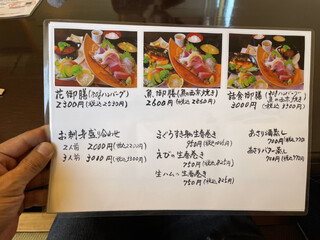 花御膳(おろしハンバーグ)
2300円(税込2530円)
魚御膳(魚の西京焼き)
2600円(税込2860円)
詰合御膳
3000円(税込3300円)
お刺身盛り合わせ
2人前 2000円(税込2200円)
3人前 3000円(税込3300円)
まぐろすき身の生春巻き
950円(税込1045円)
えびの生春巻き
750円(税込825円)
生ハムの生春巻き
750円(税込825円)
あさり酒蒸し
700円(税込770円)
あさりバター蒸し
700円(税込770円)